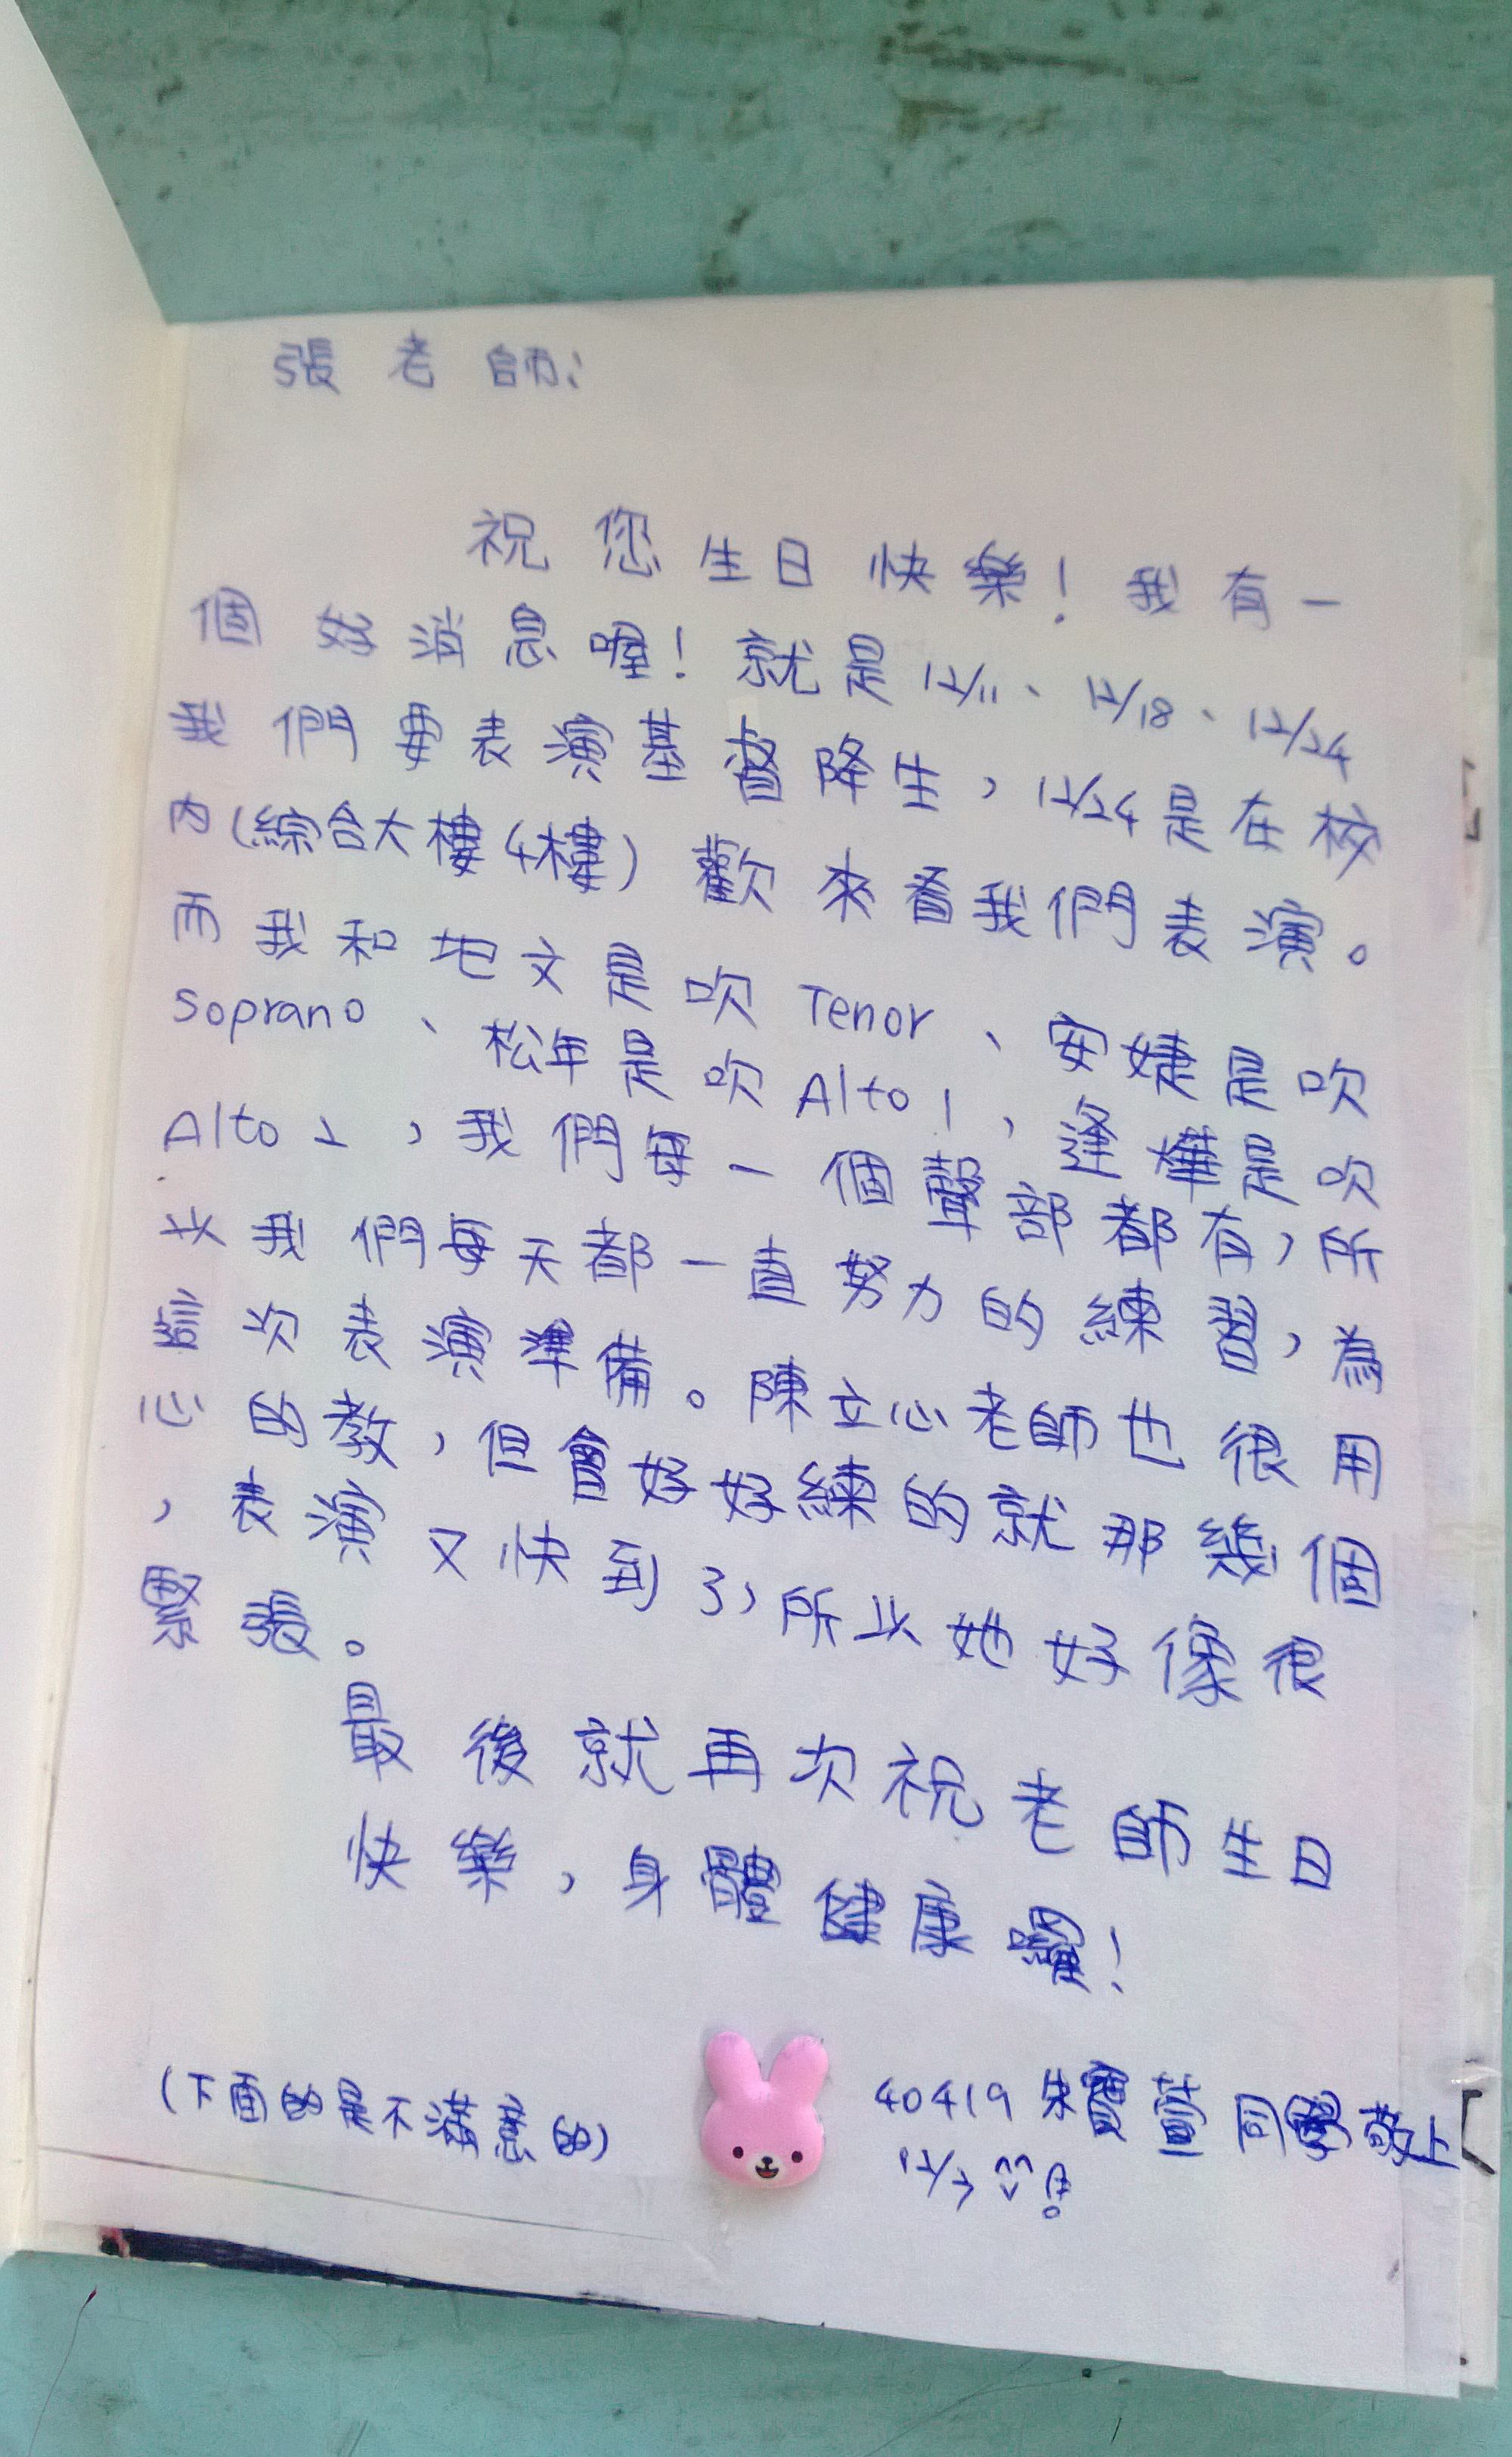 張老師:
祝您生日快樂!我有一
個好消息喔!就是12/11、12/18、12/24
我們要表演基督降生,12/24是在校
內(綜合大樓4樓)歡來看我們表演。
而我和地文是吹Tenor、安婕是吹
Soprano、松年是吹Alto1,逢樺是吹
Alto2,我們每一個聲部都有,所
以我們每天都一直努力的練習,為
這次表演準備。陳立心老師也很用
心的教,但會好好練的就那幾個
,表演又快到了,所以她好像很
緊張。
最後就再次祝老師生日
快樂,身體健康囉!
(下面的是不滿意的)
40419朱寶萱同學敬上
12/7